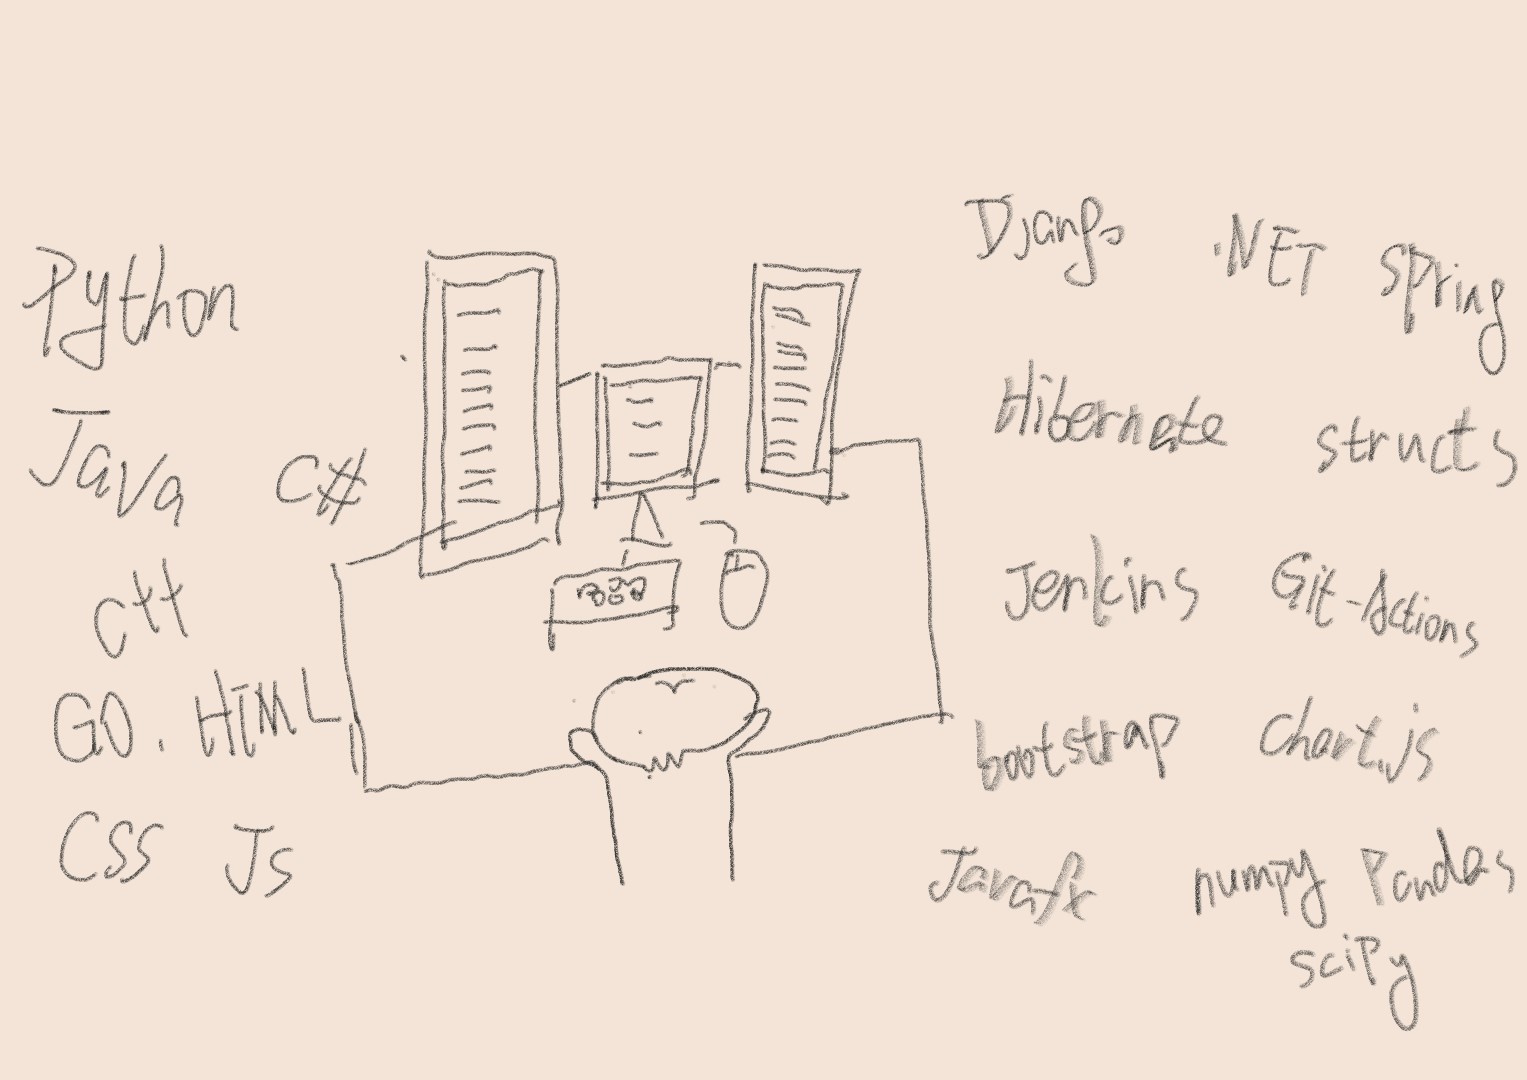 Python
Java C#
C++
GO. HTML
CSS Js
Django .NET spring
Hibernate structs
Jenkins Git-Actions
bootstrap chart.js
Javafx numpy Pandas
scipy